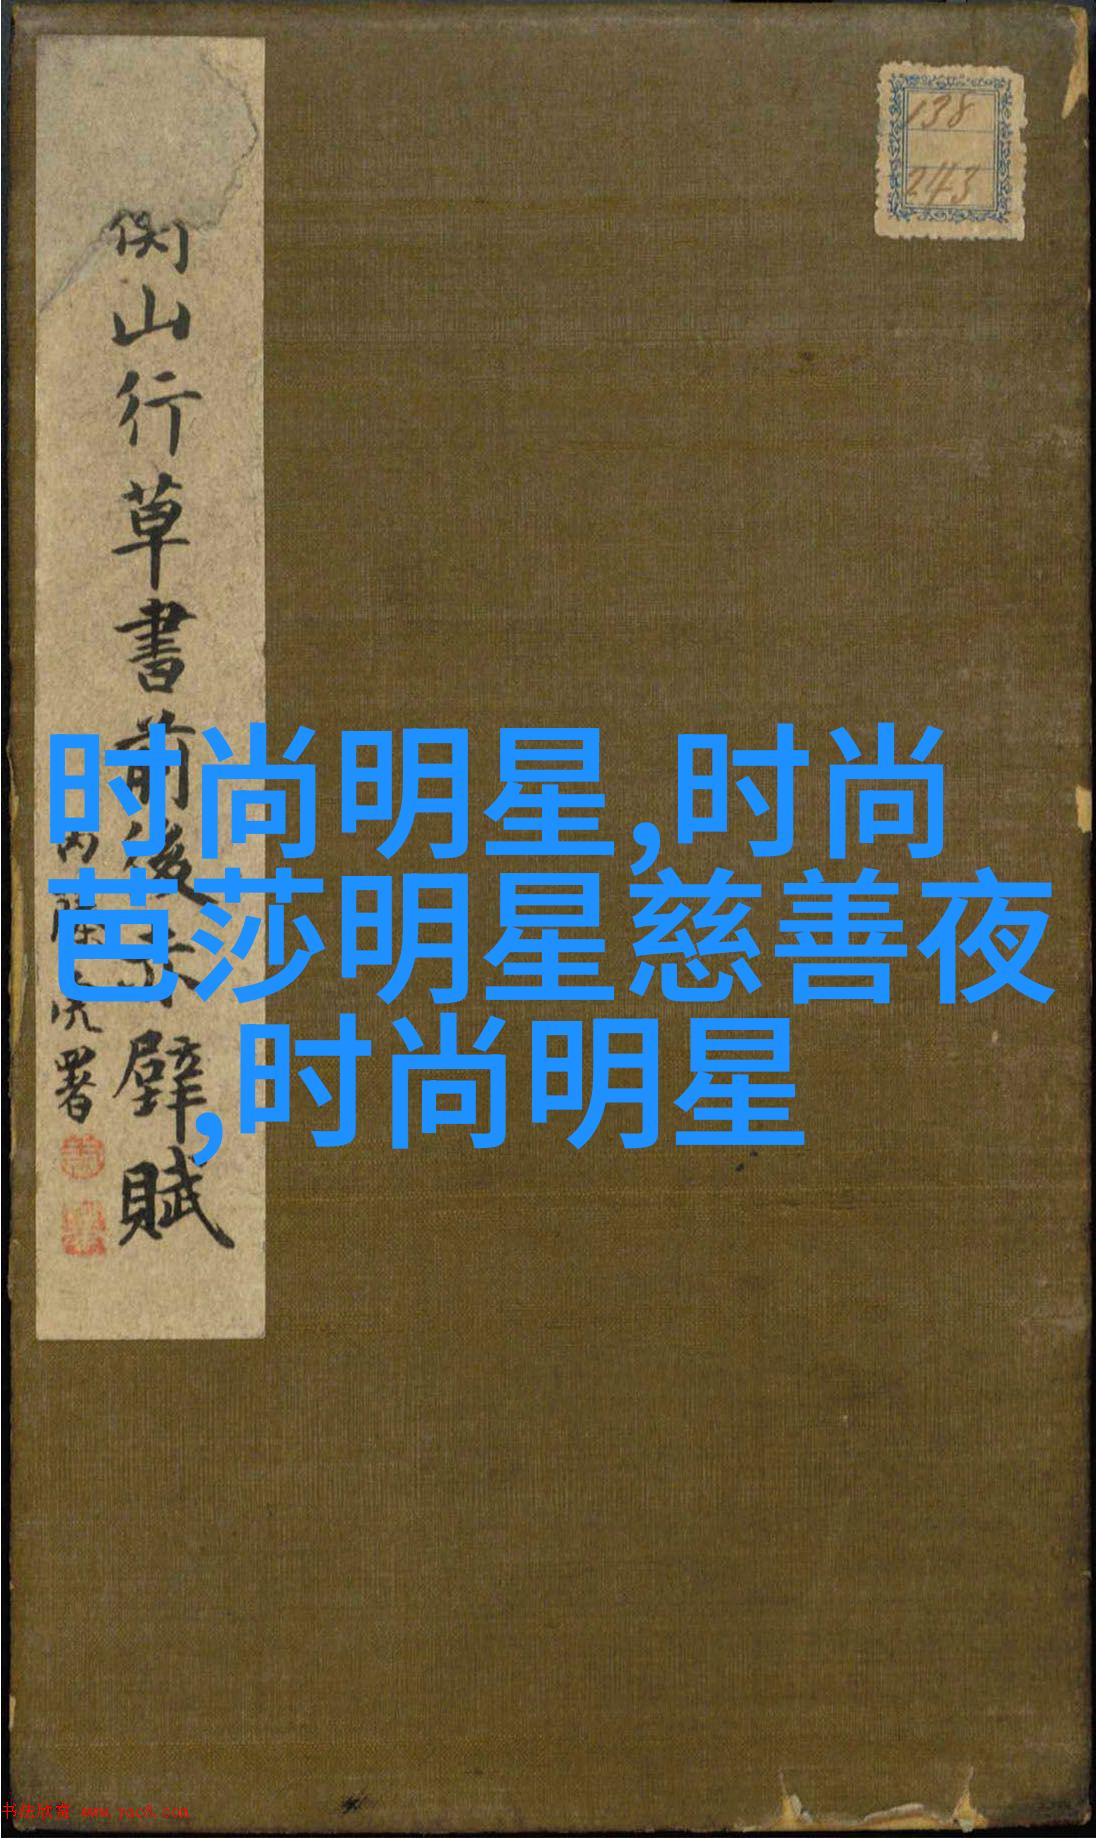 138
243
山行草書前後赤壁賦
署
时尚明星,时尚
芭莎明星慈善夜
,时尚明星
书法欣赏 www.yac8.com